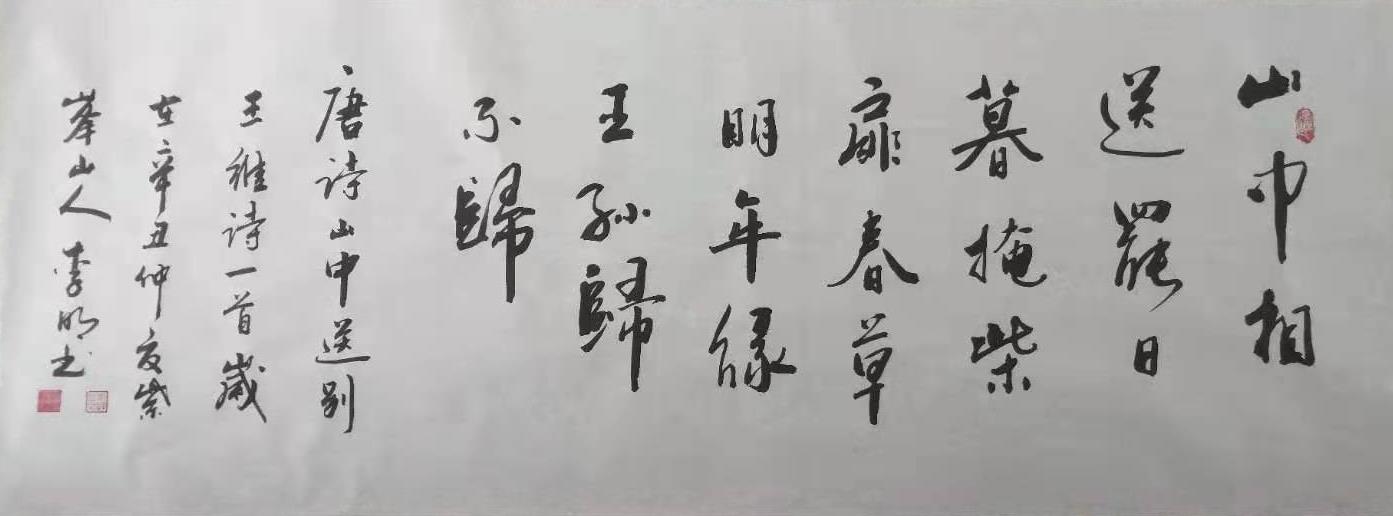 山中相
送罷日
暮掩柴
扉春草
明年緑
王孫歸
不歸
唐诗山中送别
王維诗一首歲
在辛丑仲夏紫
峯山人李明书